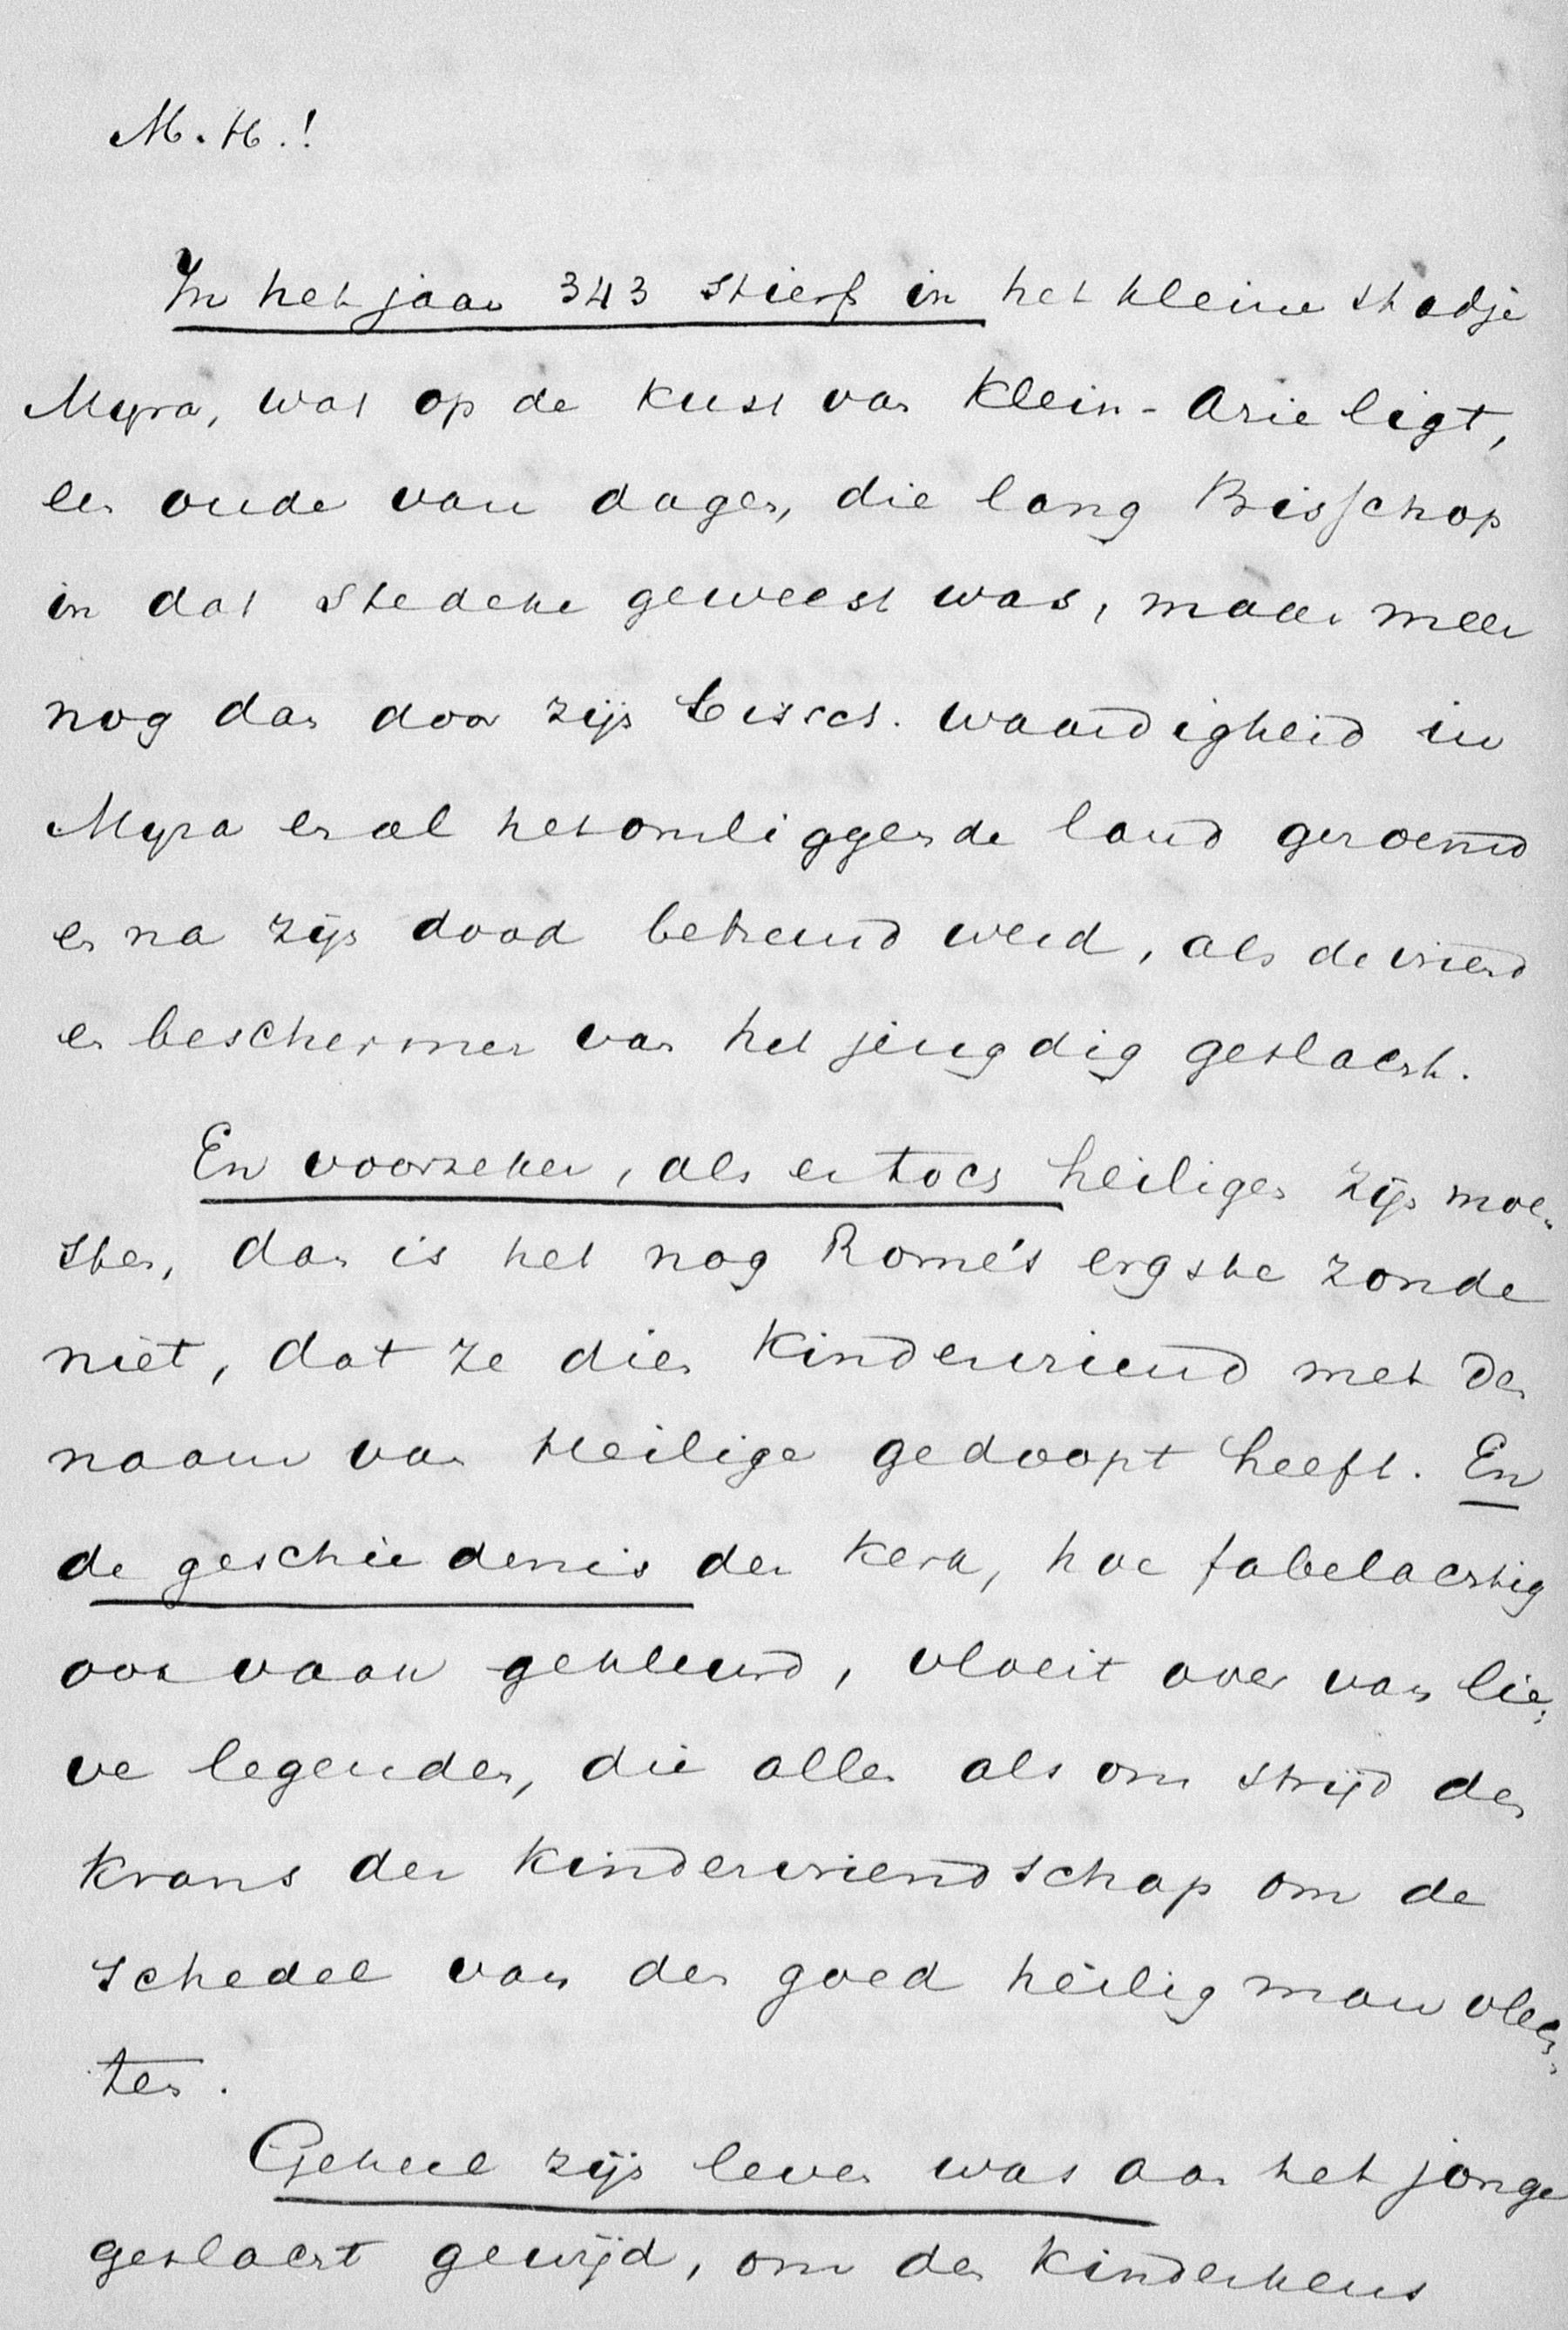 M.H.!
In het jaar 343 stierf in het kleine stadje
Myra, wat op de kust van Klein-Azie ligt,
een oude van dagen, die lang Bisschop
in dat stedeke geweest was, maar meer
nog dan door zijn bissch. waardigheid in
Myra en al het omliggende land geroemd
en na zijn dood betreurd werd, als de vriend
en beschermer van het jeugdig geslacht.
En voorzeker, als er toch heiligen zijn moe-
sten, dan is het nog Rome's ergste zonde
niet, dat ze dien Kindervriend met den
naam van Heilige gedoopt heeft. En
de geschiedenis der Kerk, hoe fabelachtig
ook vaak gekleurd, vloeit over van lie-
ve legenden, die allen als om strijd den
Krans der Kindervriendschap om de
schedel van den goed heilig man vlech-
ten.
Geheel zijn leven was aan het jonge
geslacht gewijd, om der Kinderkens